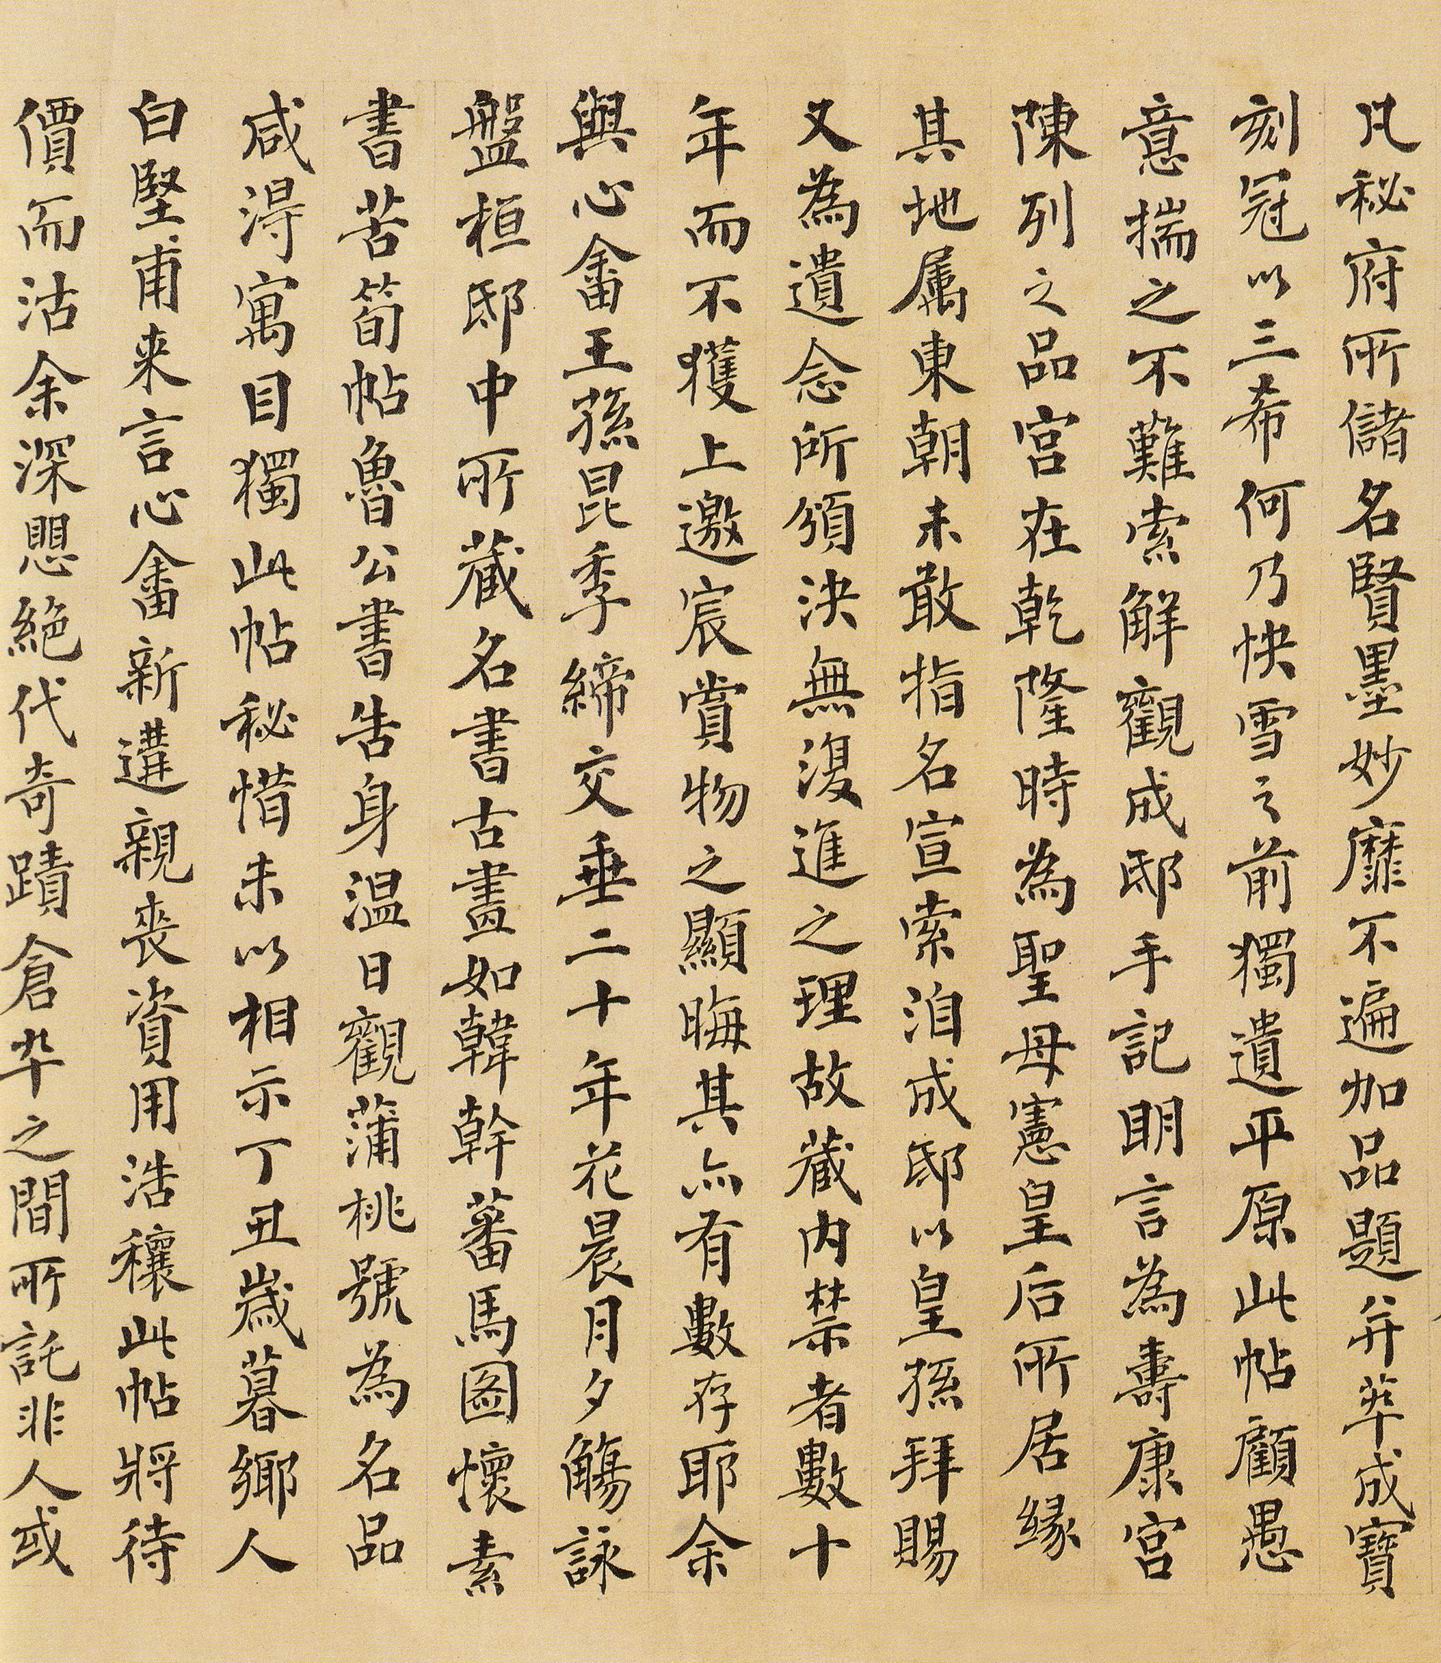 凡秘府所儲名賢墨妙靡不遍加品題并萃成寶
刻冠以三希何乃快雪之前獨遺平原此帖顧愚
意揣之不難索解觀成邸手記明言為壽康宮
陳列之品宮在乾隆時為聖母憲皇后所居緣
其地属東朝未敢指名宣索洎成邸以皇孫拜賜
又為遺念所頒決無復進之理故藏內禁者數十
年而不獲上邀宸賞物之顯晦其亦有數存耶余
與心畬王孫昆季締交垂二十年花晨月夕觴詠
盤桓邸中所藏名書古畫如韓幹蕃馬圖懷素
書苦筍帖魯公書告身温日觀蒲桃號為名品
咸得寓目獨此帖秘惜未以相示丁丑歲暮鄉人
白堅甫来言心畬新遘親喪資用浩穰此帖將待
價而沽余深懼絕代奇蹟倉卒之間所託非人或